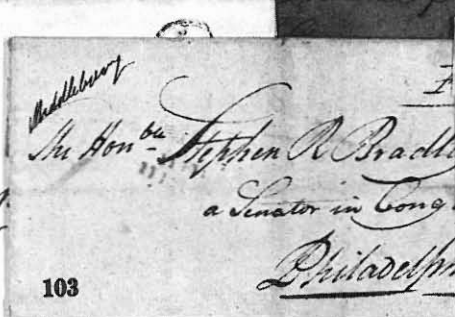 Middlebury
The Honble Stephen R Bradl
a Senator in Cong
Philadelph
103